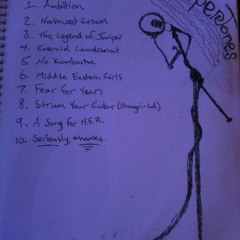 1. Ambition
2. Northwest Grown
3. The Legend of Juniper
4. Emerald
5. No Kombucha
6. Middle Eastern Girls
7. Fear for Years
8. Strum Your Guitar (Shangri-LA)
9. A Song for H.E.R.
10. Seriously, thanks.